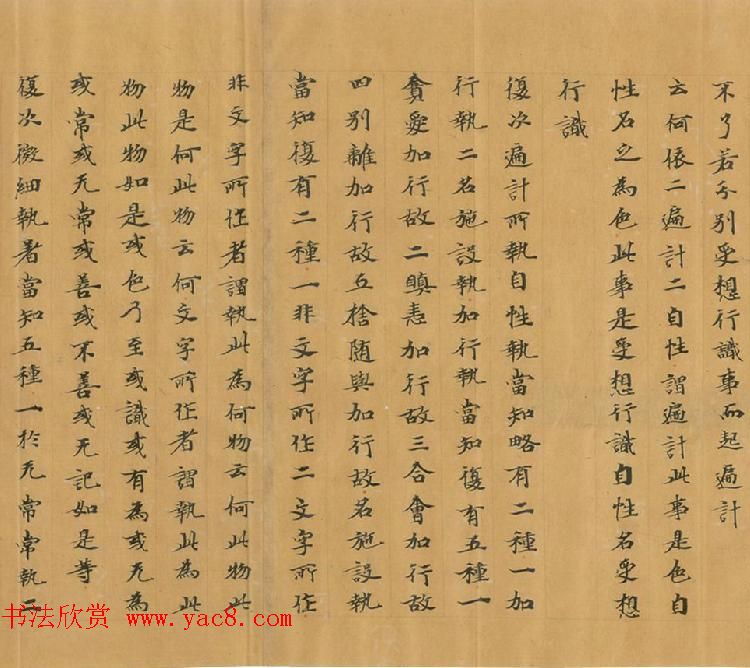 不了若分別受想行識事而起遍計
云何依二遍計二自性謂遍計此事是色自
性名之為色此事是受想行識自性名受想
行識
復次遍計所執自性執當知略有二種一加
行執二名施設執加行執當知復有五種一
貪愛加行故二瞋恚加行故三合會加行故
四別離加行故五捨隨與加行故名施設執
當知復有二種一非文字所作二文字所作
非文字所作者謂執此為何物云何此物此
物是何此物云何文字所作者謂執此為此
物此物如是或色乃至或識或有為或无為
或常或无常或善或不善或无記如是等
復次微細執著當知五種一於无常常執二
书法欣赏 www.yac8.com